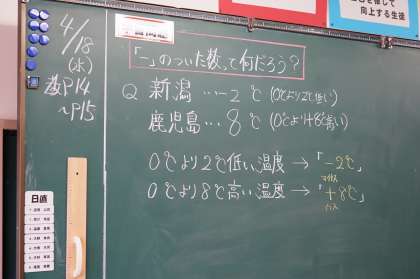 を通して
向上する生徒
4/18
(水)
教P14
～P15
「－」のついた数って何だろう?
Q 新潟 …－2℃ (0℃より2℃低い)
鹿児島… 8℃ (0℃より8℃高い)
0℃より2℃低い温度 → 「－2℃」
マイナス
0℃より8℃高い温度 → 「＋8℃」
プラス
日直